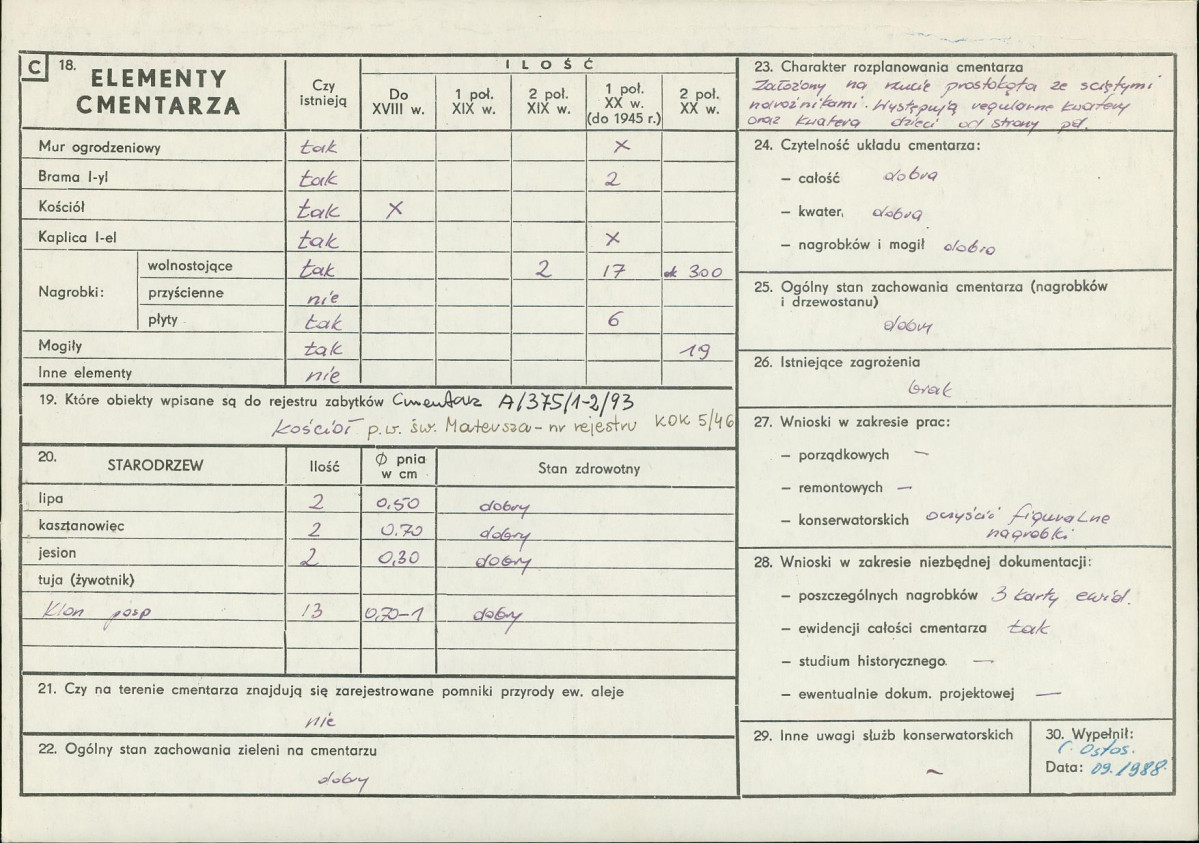 C 18. ELEMENTY CMENTARZA Czy istnieją I L O Ś Ć
Do XVIII w. 1 poł. XIX w. 2 poł. XIX w. 1 poł. XX w. (do 1945 r.) 2 poł. XX w.
Mur ogrodzeniowy tak x
Brama I-yl tak 2
Kościół tak x
Kaplica I-el tak x
Nagrobki:
wolnostojące tak 2 17 ok 300
przyścienne nie
płyty tak 6
Mogiły tak 19
Inne elementy nie
19. Które obiekty wpisane są do rejestru zabytków Cmentarz A/375/1-2/93
Kościół p.w. św. Mateusza - nr rejestru KOK 5/46
20. STARODRZEW Ilość Ø pnia w cm Stan zdrowotny
lipa 2 0,50 dobry
kasztanowiec 2 0.70 dobry
jesion 2 0,30 dobry
tuja (żywotnik)
Klon posp 13 0,70-1 dobry
21. Czy na terenie cmentarza znajdują się zarejestrowane pomniki przyrody ew. aleje
nie
22. Ogólny stan zachowania zieleni na cmentarzu
dobry
23. Charakter rozplanowania cmentarza
Założony na rzucie prostokąta ze ściętymi
narożnikami. Występują regularne kwatery
oraz kwatera dzieci od strony pd.
24. Czytelność układu cmentarza:
– całość dobra
– kwater, dobra
– nagrobków i mogił dobra
25. Ogólny stan zachowania cmentarza (nagrobków
i drzewostanu)
dobry
26. Istniejące zagrożenia
brak
27. Wnioski w zakresie prac:
– porządkowych —
– remontowych —
– konserwatorskich oczyścić figuralne
nagrobki
28. Wnioski w zakresie niezbędnej dokumentacji:
– poszczególnych nagrobków 3 karty ewid.
– ewidencji całości cmentarza tak
– studium historycznego —
– ewentualnie dokum. projektowej —
29. Inne uwagi służb konserwatorskich
–
30. Wypełnił:
Ostos.
Data: 09.1988.